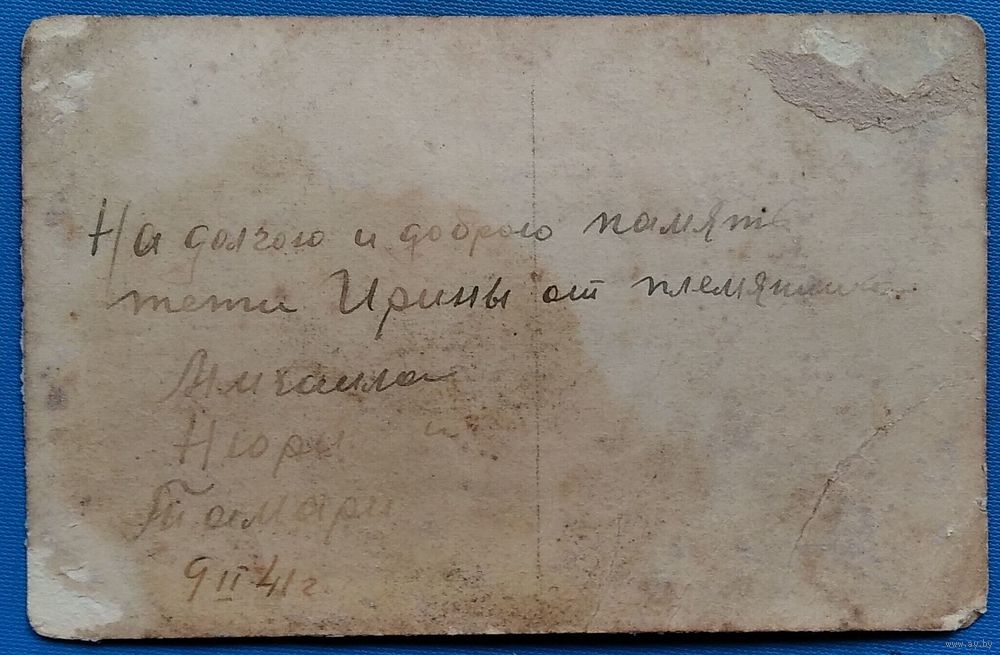 На долгою и доброю память
тети Ирины от племянника
Михаила
Нюры и
Тамары
9 II 41 г
www.ay.by